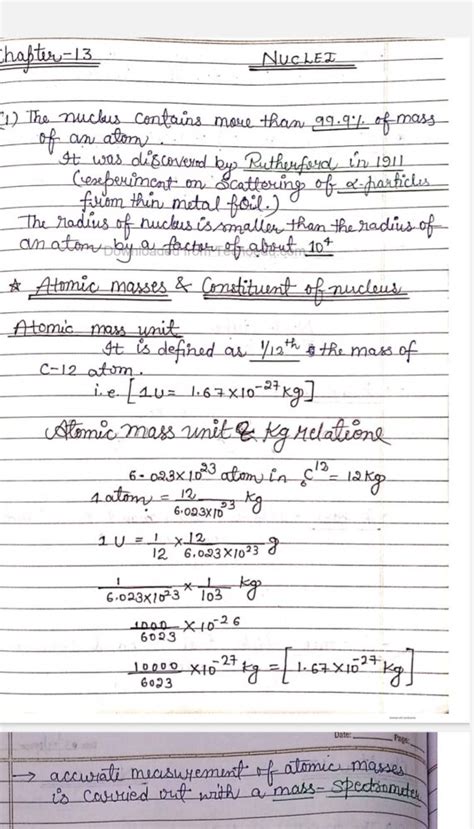 Chapter-13
NUCLEI
(1) The nucleus contains more than 99.9% of mass
of an atom.
It was discoverd by Rutherford in 1911
(experiment on scattering of α-particles
from thin metal foil.)
The radius of nucleus is smaller than the radius of
an atom by a factor of about 10⁴
☆ Atomic masses & Constituent of nucleus
Atomic mass unit
It is defined as 1/12th the mass of
C-12 atom.
i.e. [1u = 1.67×10⁻²⁷kg]
Atomic mass unit & Kg relatione
6.023×10²³ atom in ₆C¹² = 12Kg
1 atom = 12/6.023×10²³ Kg
1 U = 1/12 × 12/6.023×10²³ g
1/6.023×10²³ × 1/103 kg
1000/6023 × 10⁻²⁶
10000/6023 ×10⁻²⁷ kg = [1.67×10⁻²⁷ Kg]
Date: Page:
→ accurate measurement of atomic masses
is carried out with a mass-spectrometer